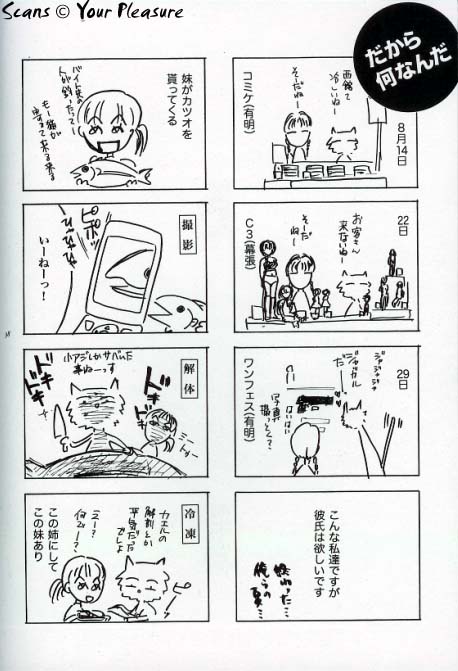 Scans © Your Pleasure
だから
何なんだ
8月14日
コミケ(有明)
西館て
涼しいねー
そーだねー
22日
C3(幕張)
お客さん
来ないねー
そーだ
ねー
29日
ワンフェス(有明)
ジャジャジャ
ジャッカル
だー
写真
撮ってく?
はいはい
こんな私達ですが
彼氏は欲しいです
終わった…
俺らの
夏…
妹がカツオを
貰ってくる
バイト先の
人が釣ったってー
もー猫が
来る来る
撮影
ピポッ
いーねーっ!
解体
小アジしかサバいた事ねーっす
ドキ
ドキ
ドキ
ドキ
冷凍
カエルの
解剖とか
平気だた
でしょ
えー?
何でー?
この姉にして
この妹あり